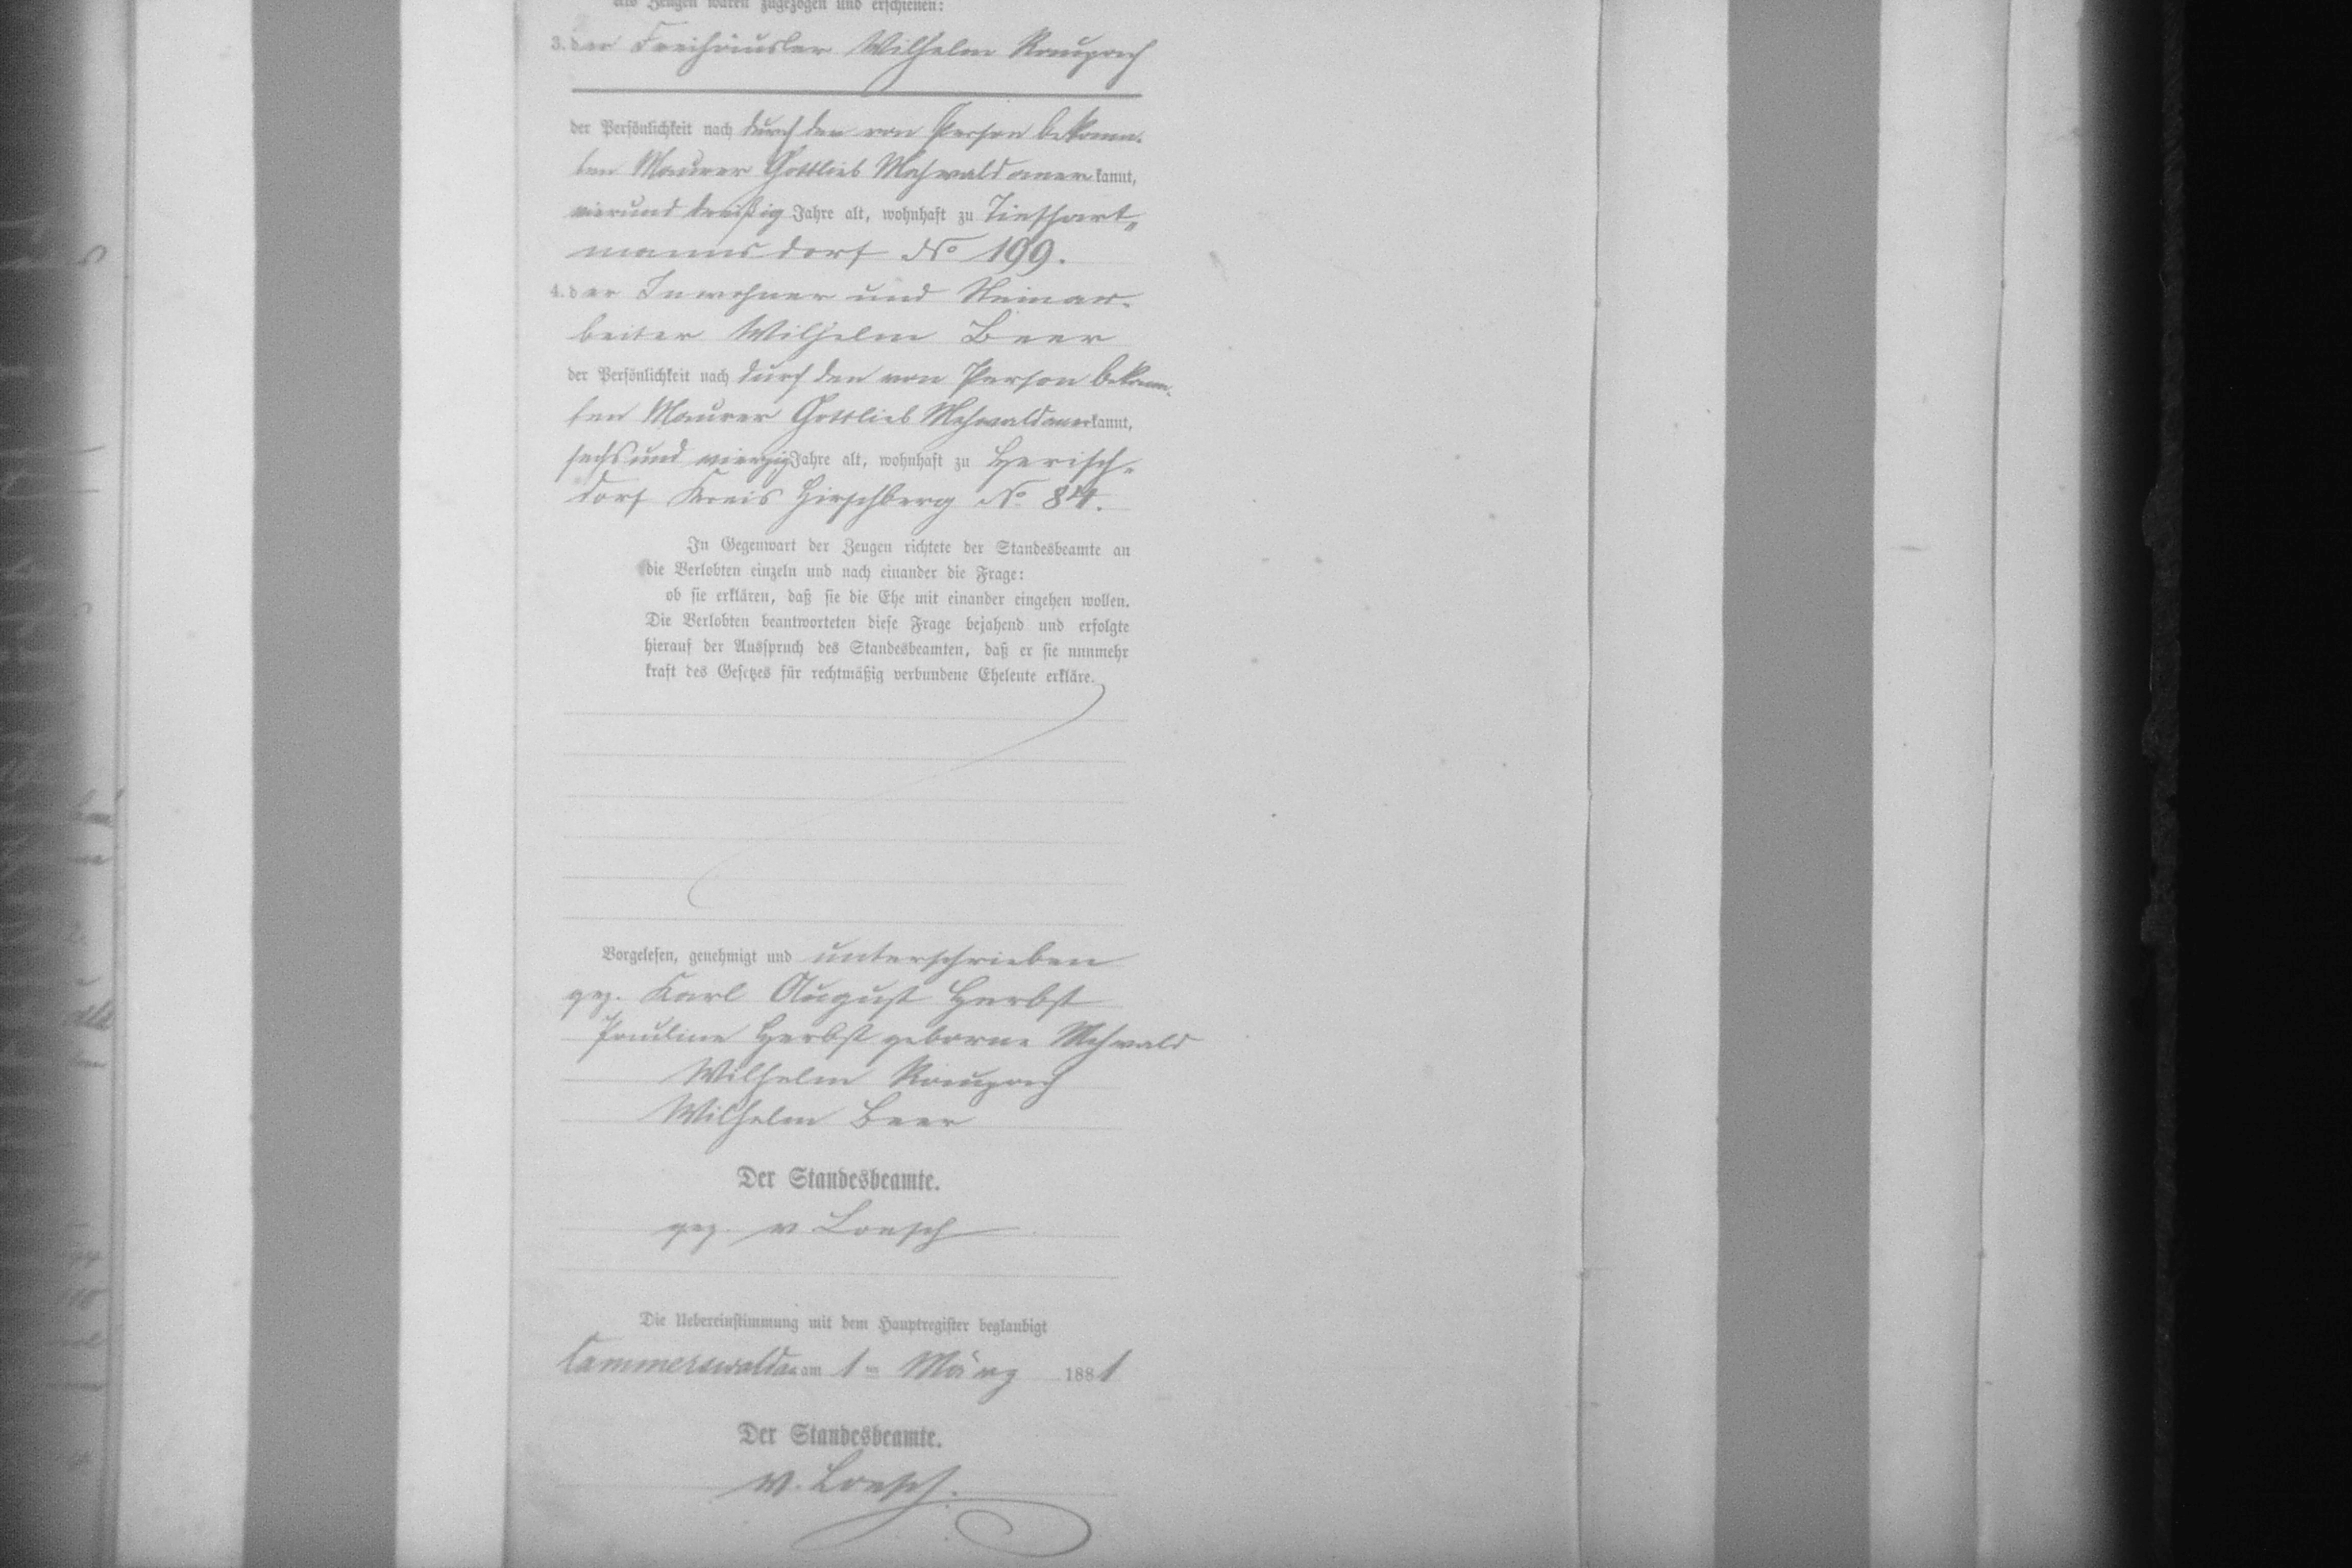 Als Zeugen waren zugezogen und erschienen:
3. der Freihäusler Wilhelm Raupach
der Persönlichkeit nach durch den von Person bekann-
ten Maurer Gottlieb Mehwald anerkannt,
vierunddreißig Jahre alt, wohnhaft zu Tiefhart-
mannsdorf No 199.
4. der Inwohner und Steinar-
beiter Wilhelm Beer
der Persönlichkeit nach durch den von Person bekann-
ten Maurer Gottlieb Mehwald anerkannt,
sechsundvierzig Jahre alt, wohnhaft zu Herisch-
dorf Kreis Hirschberg No 84.
In Gegenwart der Zeugen richtete der Standesbeamte an
die Verlobten einzeln und nach einander die Frage:
ob sie erklären, daß sie die Ehe mit einander eingehen wollen.
Die Verlobten beantworteten diese Frage bejahend und erfolgte
hierauf der Ausspruch des Standesbeamten, daß er sie nunmehr
kraft des Gesetzes für rechtmäßig verbundene Eheleute erkläre.
Vorgelesen, genehmigt und unterschrieben
gez. Karl August Herbst
Pauline Herbst geborne Mehwald
Wilhelm Raupach
Wilhelm Beer
Der Standesbeamte.
gez. v Loesch
Die Uebereinstimmung mit dem Hauptregister beglaubigt
Cammerswaldau am 1ten März 1881
Der Standesbeamte.
v. Loesch.